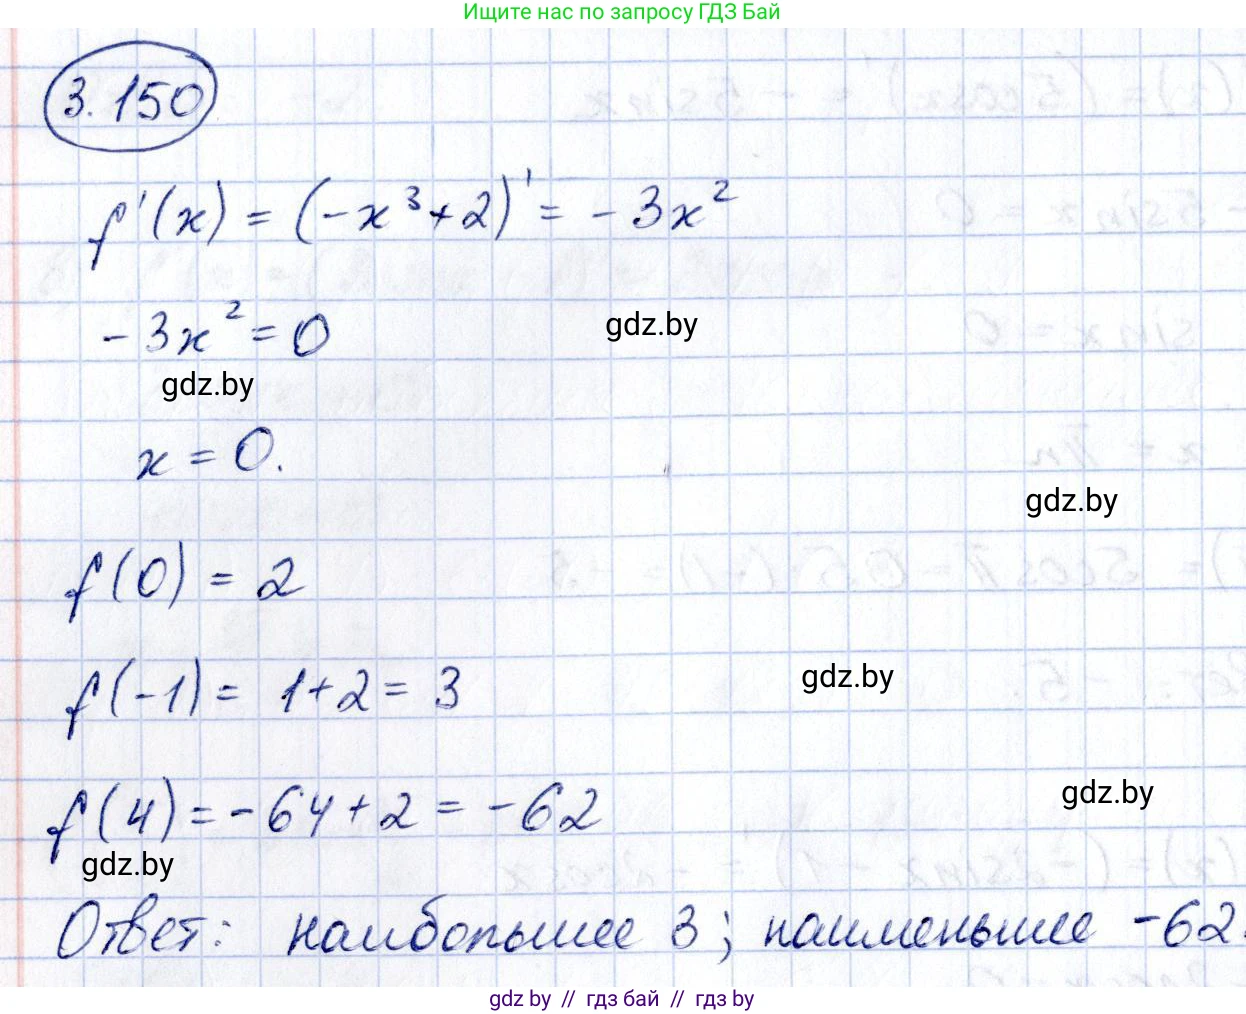 Ищите нас по запросу ГДЗ Бай
3.150
f'(x) = (-x³+2)' = -3x²
-3x² = 0
gdz.by
gdz.by
x = 0.
gdz.by
f(0) = 2
f(-1) = 1+2 = 3
gdz.by
f(4) = -64+2 = -62
gdz.by
gdz.by
Ответ: наибольшее 3; наименьшее -62.
gdz.by // гдз бай // гдз by